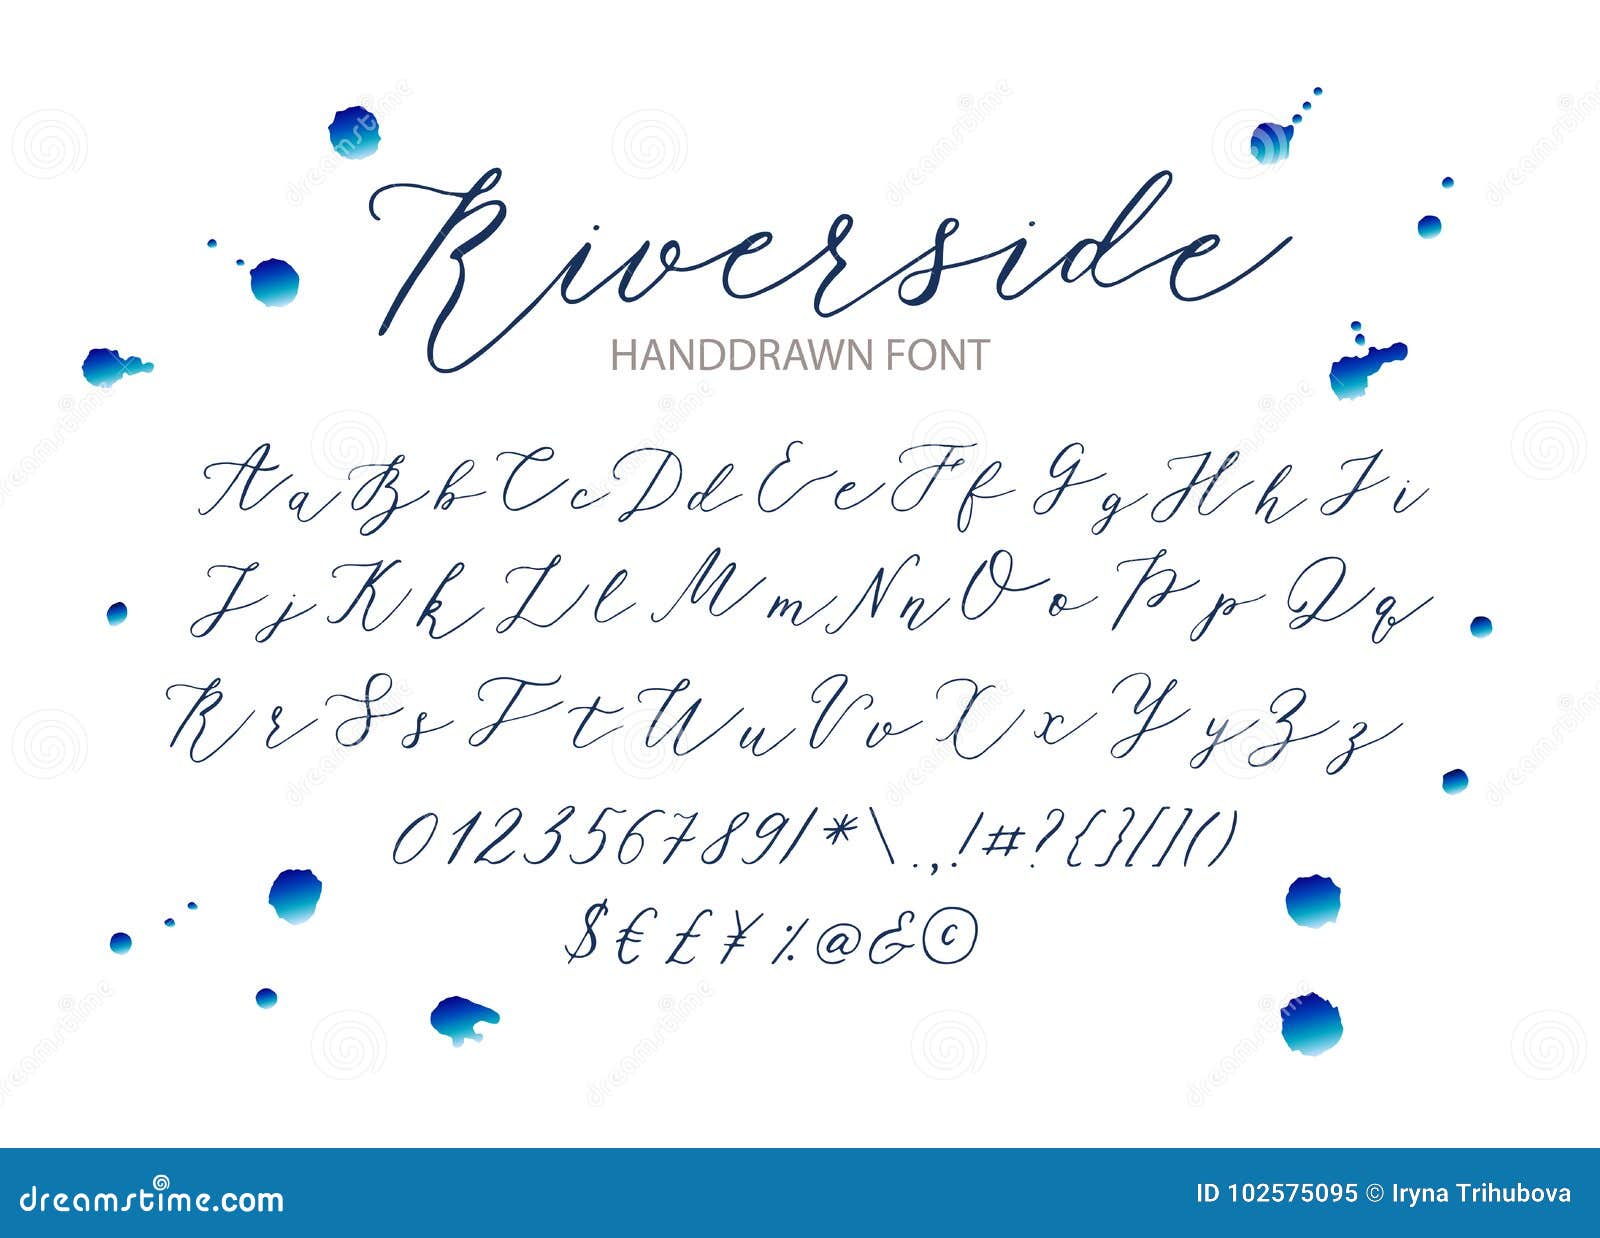 Riverside
HANDDRAWN FONT
Aa Bb Cc Dd Ee Ff Gg Hh Ii
Jj Kk Ll Mm Nn Oo Pp Qq
Rr Ss Tt Uu Vv Xx Yy Zz
012356789/*\.,!#?{}[]()
$€£¥%@&©
dreamstime.com
ID 102575095 © Iryna Trihubova